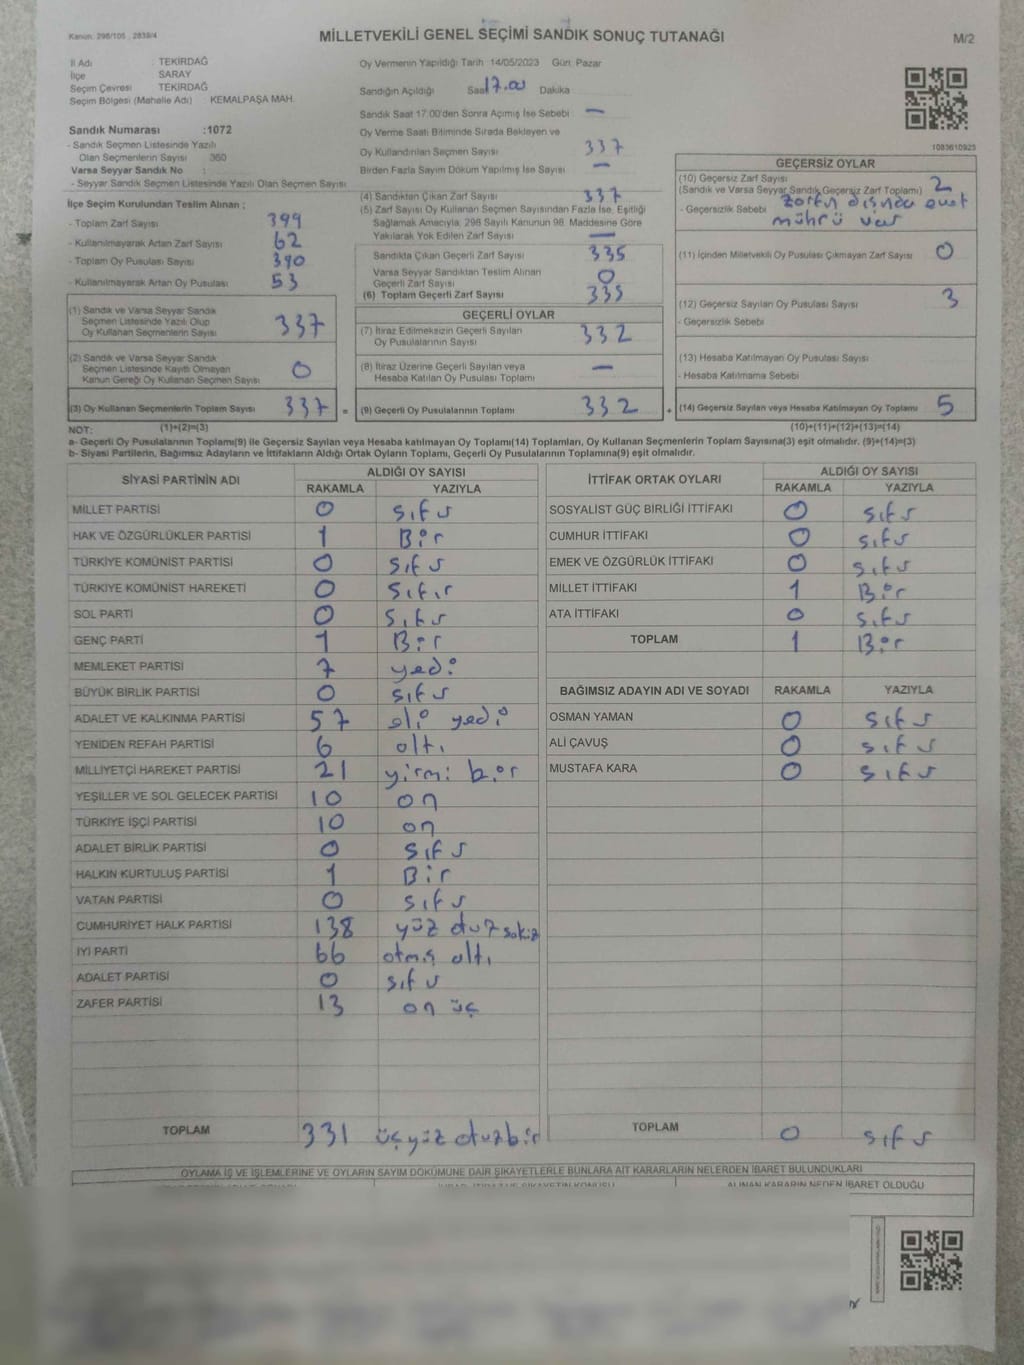 Kanun: 298/105 2839/4
MİLLETVEKİLİ GENEL SEÇİMİ SANDIK SONUÇ TUTANAĞI
M/2
İl Adı : TEKİRDAĞ
İlçe : SARAY
Seçim Çevresi : TEKİRDAĞ
Seçim Bölgesi (Mahalle Adı) KEMALPAŞA MAH.
Sandık Numarası :1072
- Sandık Seçmen Listesinde Yazılı
Olan Seçmenlerin Sayısı 360
Varsa Seyyar Sandık No :
- Seyyar Sandık Seçmen Listesinde Yazılı Olan Seçmen Sayısı
İlçe Seçim Kurulundan Teslim Alınan ;
- Toplam Zarf Sayısı 399
- Kullanılmayarak Artan Zarf Sayısı 62
- Toplam Oy Pusulası Sayısı 390
- Kullanılmayarak Artan Oy Pusulası 53
(1) Sandık ve Varsa Seyyar Sandık
Seçmen Listesinde Yazılı Olup
Oy Kullanan Seçmenlerin Sayısı 337
(2) Sandık ve Varsa Seyyar Sandık
Seçmen Listesinde Kayıtlı Olmayan
Kanun Gereği Oy Kullanan Seçmen Sayısı 0
(3) Oy Kullanan Seçmenlerin Toplam Sayısı 337 =
Oy Vermenin Yapıldığı Tarih 14/05/2023 Gün: Pazar
Sandığın Açıldığı Saat 17.00 Dakika
Sandık Saat 17:00'den Sonra Açımış İse Sebebi —
Oy Verme Saati Bitiminde Sırada Bekleyen ve
Oy Kullandırılan Seçmen Sayısı 337
Birden Fazla Sayım Döküm Yapılmış İse Sayısı —
(4) Sandıktan Çıkan Zarf Sayısı 337
(5) Zarf Sayısı Oy Kullanan Seçmen Sayısından Fazla İse, Eşitliği
Sağlamak Amacıyla, 298 Sayılı Kanunun 98. Maddesine Göre
Yakılarak Yok Edilen Zarf Sayısı —
Sandıkta Çıkan Geçerli Zarf Sayısı 335
Varsa Seyyar Sandıktan Teslim Alınan
Geçerli Zarf Sayısı 0
(6) Toplam Geçerli Zarf Sayısı 335
GEÇERLİ OYLAR
(7) İtiraz Edilmeksizin Geçerli Sayılan
Oy Pusulalarının Sayısı 332
(8) İtiraz Üzerine Geçerli Sayılan veya
Hesaba Katılan Oy Pusulası Toplamı —
(9) Geçerli Oy Pusulalarının Toplamı 332 +
1083610923
GEÇERSİZ OYLAR
(10) Geçersiz Zarf Sayısı
(Sandık ve Varsa Seyyar Sandık Geçersiz Zarf Toplamı) 2
- Geçersizlik Sebebi zarfın dışında evet
mührü var
(11) İçinden Milletvekili Oy Pusulası Çıkmayan Zarf Sayısı 0
(12) Geçersiz Sayılan Oy Pusulası Sayısı 3
- Geçersizlik Sebebi
(13) Hesaba Katılmayan Oy Pusulası Sayısı
- Hesaba Katılmama Sebebi
(14) Geçersiz Sayılan veya Hesaba Katılmayan Oy Toplamı 5
NOT: (1)+(2)=(3)
(10)+(11)+(12)+(13)=(14)
a- Geçerli Oy Pusulalarının Toplamı(9) ile Geçersiz Sayılan veya Hesaba katılmayan Oy Toplamı(14) Toplamları, Oy Kullanan Seçmenlerin Toplam Sayısına(3) eşit olmalıdır. (9)+(14)=(3)
b- Siyasi Partilerin, Bağımsız Adayların ve İttifakların Aldığı Ortak Oyların Toplamı, Geçerli Oy Pusulalarının Toplamına(9) eşit olmalıdır.
SİYASİ PARTİNİN ADI ALDIĞI OY SAYISI
RAKAMLA YAZIYLA
MİLLET PARTİSİ 0 sıfır
HAK VE ÖZGÜRLÜKLER PARTİSİ 1 Bir
TÜRKİYE KOMÜNİST PARTİSİ 0 sıfır
TÜRKİYE KOMÜNİST HAREKETİ 0 sıfır
SOL PARTİ 0 sıfır
GENÇ PARTİ 1 Bir
MEMLEKET PARTİSİ 7 yedi
BÜYÜK BİRLİK PARTİSİ 0 sıfır
ADALET VE KALKINMA PARTİSİ 57 eli yedi
YENİDEN REFAH PARTİSİ 6 altı
MİLLİYETÇİ HAREKET PARTİSİ 21 yirmi bir
YEŞİLLER VE SOL GELECEK PARTİSİ 10 on
TÜRKİYE İŞÇİ PARTİSİ 10 on
ADALET BİRLİK PARTİSİ 0 sıfır
HALKIN KURTULUŞ PARTİSİ 1 Bir
VATAN PARTİSİ 0 sıfır
CUMHURİYET HALK PARTİSİ 138 yüz otuz sekiz
İYİ PARTİ 66 atmış altı
ADALET PARTİSİ 0 sıfır
ZAFER PARTİSİ 13 on üç
TOPLAM 331 üçyüz otuzbir
İTTİFAK ORTAK OYLARI ALDIĞI OY SAYISI
RAKAMLA YAZIYLA
SOSYALİST GÜÇ BİRLİĞİ İTTİFAKI 0 sıfır
CUMHUR İTTİFAKI 0 sıfır
EMEK VE ÖZGÜRLÜK İTTİFAKI 0 sıfır
MİLLET İTTİFAKI 1 Bir
ATA İTTİFAKI 0 sıfır
TOPLAM 1 Bir
BAĞIMSIZ ADAYIN ADI VE SOYADI RAKAMLA YAZIYLA
OSMAN YAMAN 0 sıfır
ALİ ÇAVUŞ 0 sıfır
MUSTAFA KARA 0 sıfır
TOPLAM 0 sıfır
OYLAMA İŞ VE İŞLEMLERİNE VE OYLARIN SAYIM DÖKÜMÜNE DAİR ŞİKAYETLERLE BUNLARA AİT KARARLARIN NELERDEN İBARET BULUNDUKLARI
ALINAN KARARIN NEDEN İBARET OLDUĞU